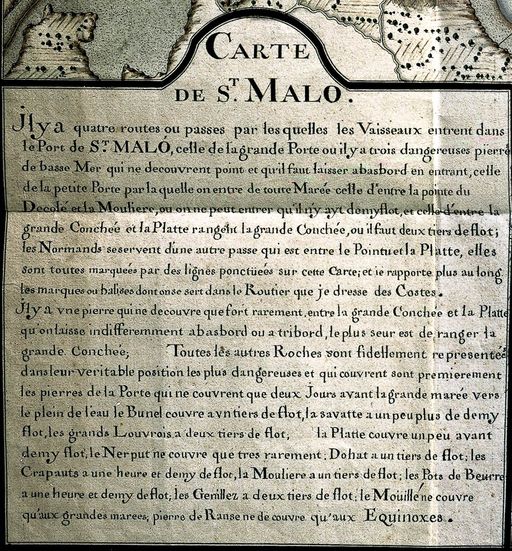 CARTE
DE S.T MALO.
Jl y a quatre routes ou passes par les quelles les Vaisseaux entrent dans
le Port de S.T MALÓ, celle de la grande Porte ou il y a trois dangereuses pierre
de basse Mer qui ne decouvrent point et qu'il faut laisser abasbord en entrant, celle
de la petite Porte par la quelle on entre de toute Marée celle d'entre la pointe du
Decolé et la Mouliere, ou on ne peut entrer qu'il n'y ayt demyflot, et celle d'entre la
grande Conchée et la Platte rangent la grande Conchée, ou il faut deux tiers de flot;
les Normands se servent d'une autre passe qui est entre le Pointu et la Platte, elles
sont toutes marquées par des lignes ponctüées sur cette Carte; et ie rapporte plus au long
les marques ou balises dont on se sert dans le Routier que je dresse des Costes.
Jl y a vne pierre qui ne decouvre que fort rarement, entre la grande Conchée et la Platte
qu'on laisse indifferemment abasbord ou a tribord, le plus seur est de ranger la
grande Conchée; Toutes les autres Roches sont fidellement representeé
dans leur veritable position les plus dangereuses et qui couvrent sont premierement
les pierres de la Porte qui ne couvrent que deux Jours avant la grande marée vers
le plein de l'eau le Bunel couvre a vn tiers de flot, la savatte a un peu plus de demy
flot, les grands Louvrois a deux tiers de flot, la Platte couvre un peu avant
demy flot, le Nerput ne couvre que tres rarement; Dohat a un tiers de flot; les
Crapauts a une heure et demy de flot, la Mouliere a un tiers de flot; les Pots de Beurre
a une heure et demy de flot, les Genillez a deux tiers de flot; le Moüillé ne couvre
qu'aux grandes marees; pierre de Ranse ne de couvre qu'aux Equinoxes.